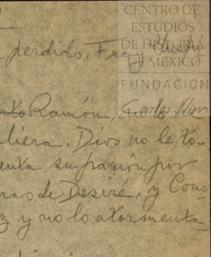 CENTRO DE
ESTUDIOS
DE HISTORIA
DE MEXICO
FUNDACION
perdido, Fray
Ramón,
liera. Dios no le to-
enta su pasión por
ras de Desiré, y Cons
z y no lo atormenta